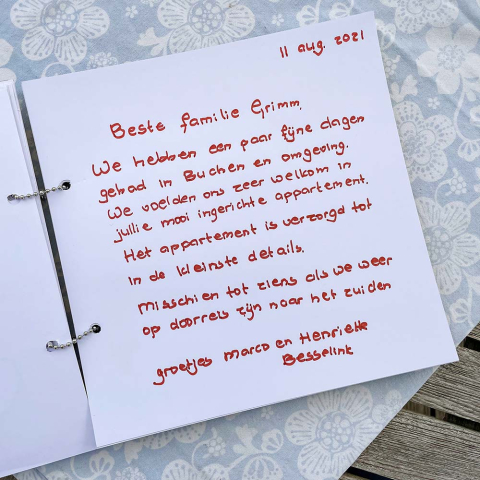 11 aug. 2021
Beste familie Grimm.
We hebben een paar fijne dagen
gehad in Buchen en omgeving.
We voelden ons zeer welkom in
jullie mooi ingerichte appartement.
Het appartement is verzorgd tot
in de kleinste details.
Misschien tot ziens als we weer
op doorreis zijn naar het zuiden
groetjes Marco en Henriette
Besselink